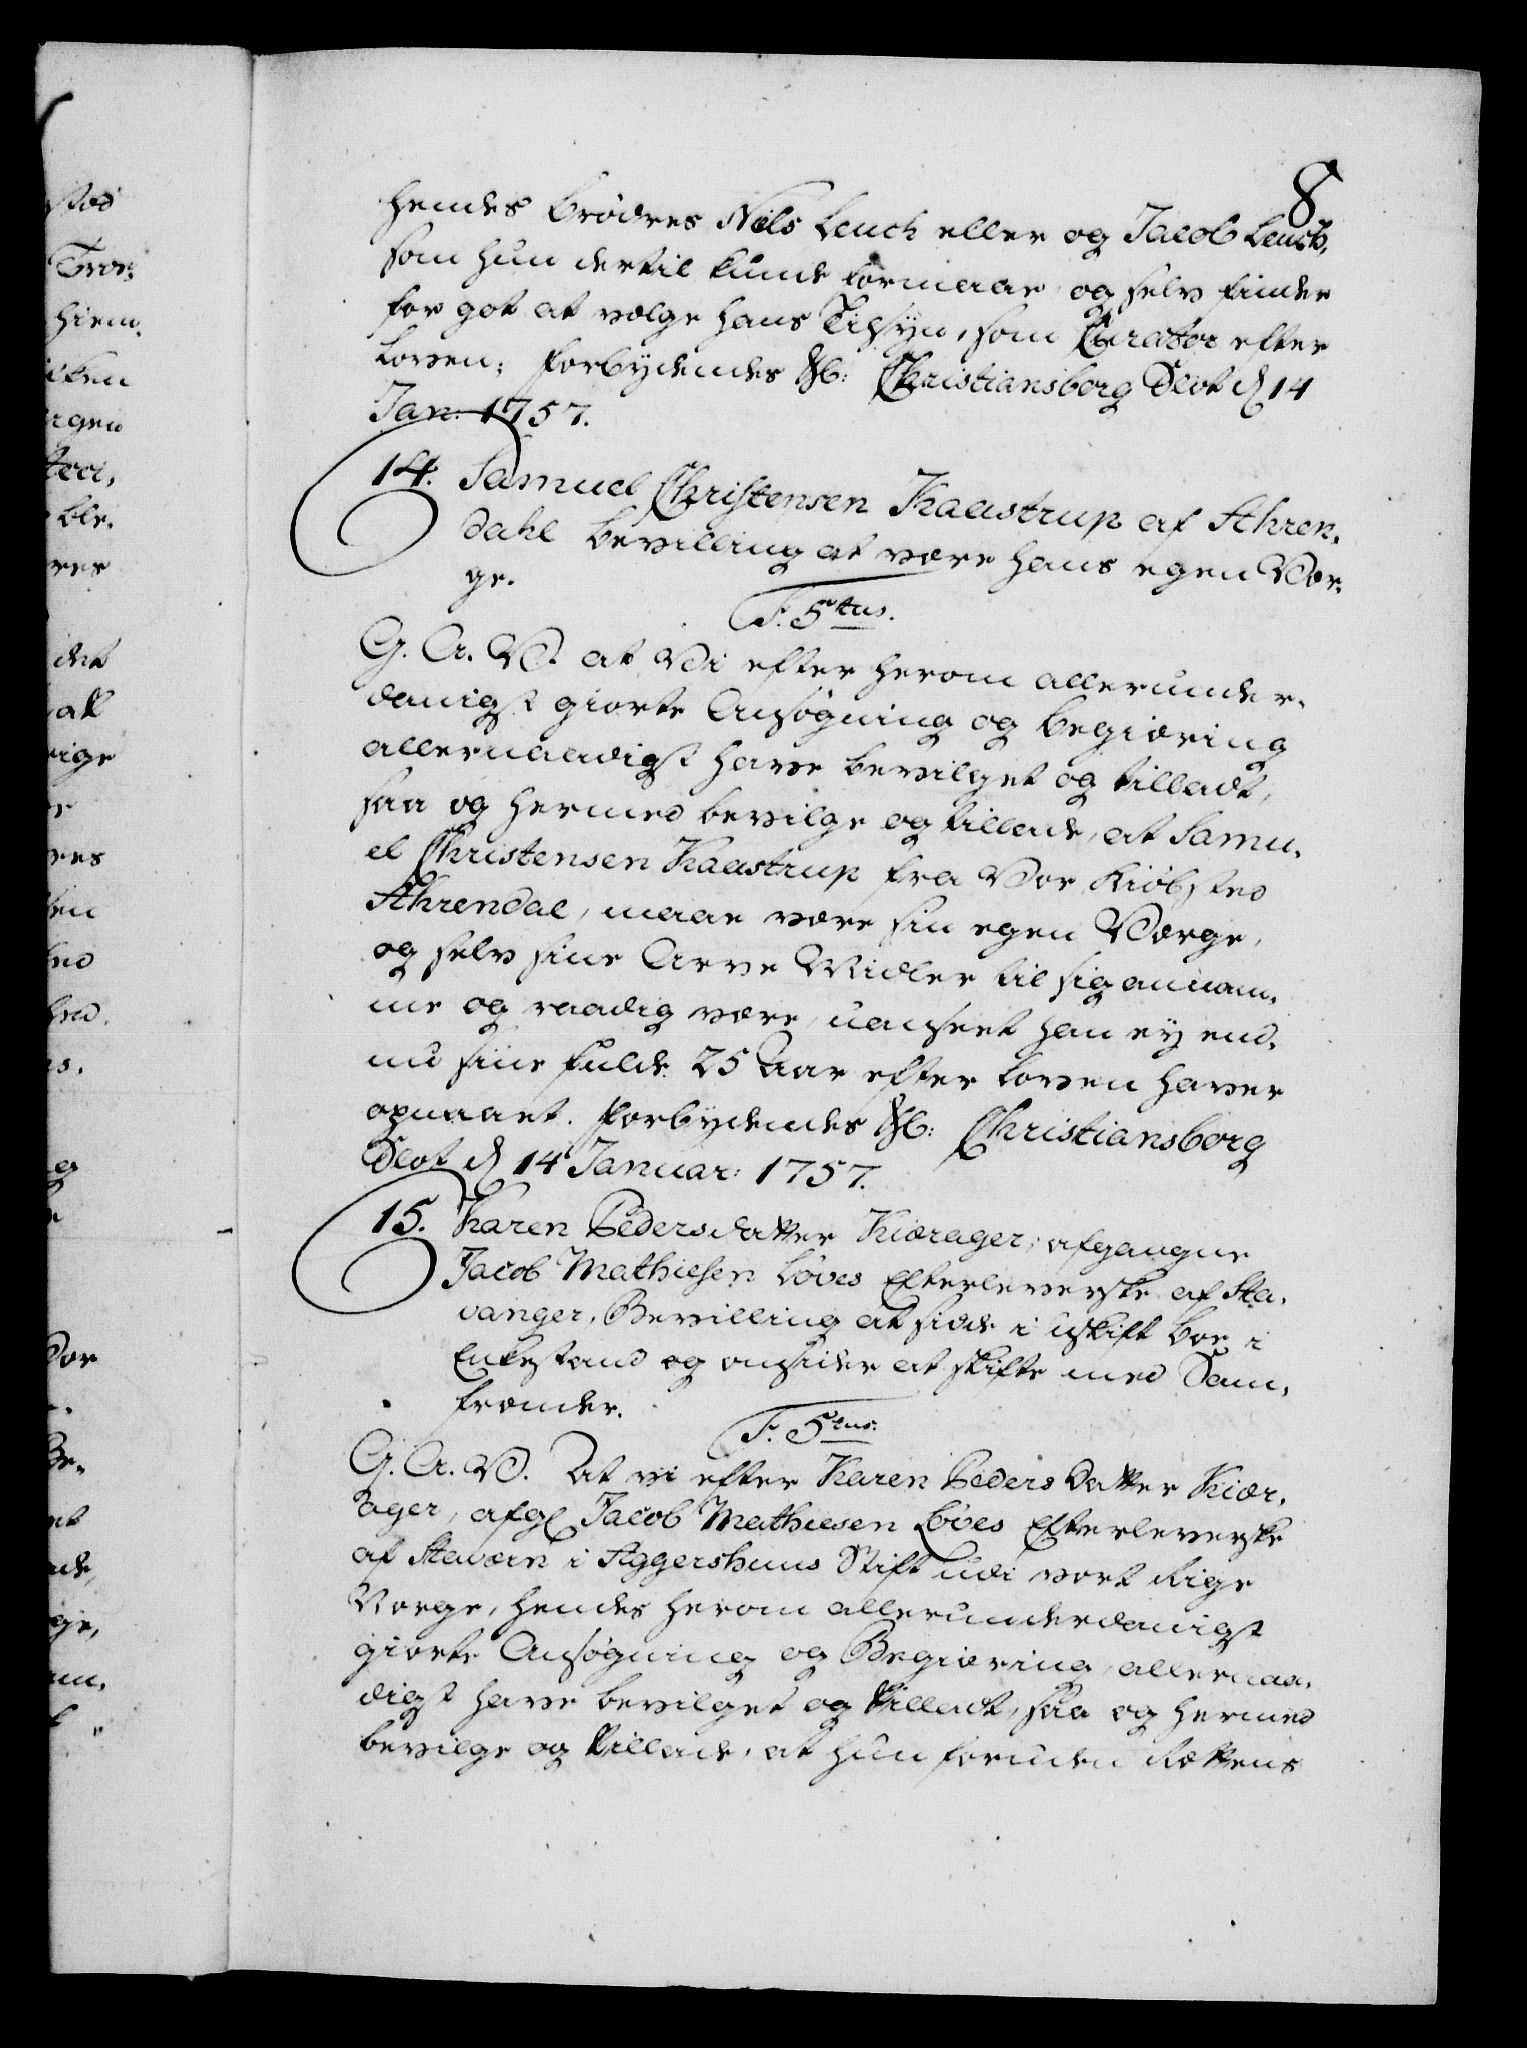 8
hendes brødres Niels Leuch eller og Jacob Leuch,
som hun dertil kunde formaae og selv finder
for got at vælge hans Tilsyn, som Curator efter
Loven; forbydendes &c: Christiansborg Slot d 14
Jan: 1757.
14. Samuel Christensen Kaastrup af Ahren-
dahl bevilling at være hans egen Vær-
ge.
F. 5tus.
G. A. V. at Vi efter herom allerunder-
danigst giorte Ansøgning og begiæring
allernaadigst have bevilget og tilladt,
saa og hermed bevilge og tillade, at Samu-
el Christensen Kaastrup fra Vor Kiøbsted
Ahrendal, maae være sin egen Værge,
og selv sine Arve Midler til sig annam-
me og raadig være, uanseet han ey end-
nu siine fulde 25 Aar efter Loven haver
opnaaet. Forbydendes &c: Christiansborg
Slot d 14 Januar: 1757.
15. Karen Pedersdatter Kiærager, afgangne
Jacob Mathiesen Løves Efterleverske af Sta-
vanger, Bevilling at sidde i uskift boe i
Enkestand og onsider at skifte med Sam-
frænder.
F. 5tus.
G. A. V. At vi efter Karen Peders Datter Kiær-
ager, afg Jacob Mathiesen Løves Efterleverske
af Staværn i Aggershuus Stift udi vort Rige
Norge, hendes herom allerunderdanigst
giorte Ansøgning og Begiæring allernaa-
digst have bevilget og tilladt, saa og hermed
bevilge og tillade, at hun foruden Rettens
stad
Tron-
hiem.
rgen
ble-
res
det
rige
res
og
Vor
Be-
et
ade,